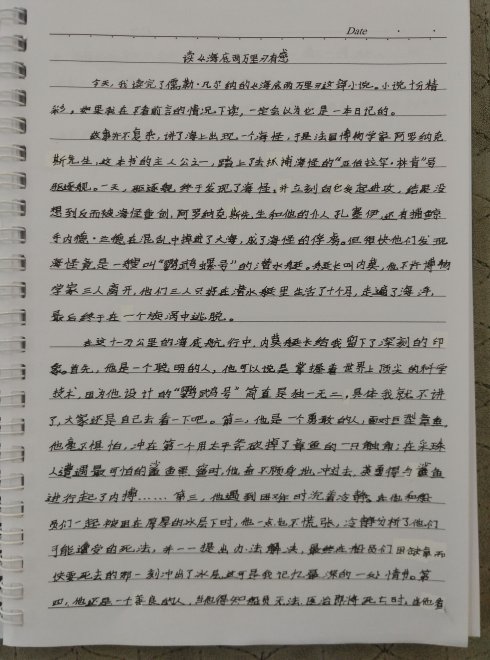 Date
读《海底两万里》有感
今天，我读完了儒勒·凡尔纳的《海底两万里》这篇小说。小说十分精
彩，如果我在不看前言的情况下读，一定会以为它是一本日记的。
故事并不复杂，讲了海上出现一个海怪，于是法国博物学家阿罗纳克
斯先生，这本书的主人公之一，踏上了去抓捕海怪的“亚伯拉罕·林肯”号
驱逐舰。一天，驱逐舰终于发现了海怪，并立刻向它发起进攻，结果没
想到反而被海怪重创，阿罗纳克斯先生和他的仆人孔塞伊还有捕鲸
手内德·兰德在混乱中掉进了大海，成了海怪的俘虏。但很快他们发现
海怪竟是一艘叫“鹦鹉螺号”的潜水艇。艇长叫内莫，他不许博物
学家三人离开，他们三人只好在潜水艇里生活了十个月，走遍了海洋，
最后终于在一个旋涡中逃脱。
在这十万公里的海底航行中，内莫艇长给我留下了深刻的印
象。首先，他是一个聪明的人，他可以说是掌握着世界上顶尖的科学
技术，因为他设计的“鹦鹉号”简直是独一无二，具体我就不讲
了，大家还是自己去看一下吧。第二，他是一个勇敢的人，面对巨型章鱼，
他毫不惧怕，冲在第一个用太平斧砍掉了章鱼的一只触角；在采珠
人遭遇最可怕的鲨鱼 鲨时，他奋不顾身地冲过去，英勇得与鲨鱼
进行起了肉搏……第三，他遇到困难时沉着冷静，在他和船
员们一起被困在厚厚的冰层下时，他一点也不慌张，冷静分析了他们
可能遭受的死法，并一一提出办法解决，最终在船员们因缺氧而
快要死去的那一刻冲出了冰层，这可是我记忆最深的一处情节。第
四，他还是一个善良的人，当他得知船员无法医治即将死亡时，